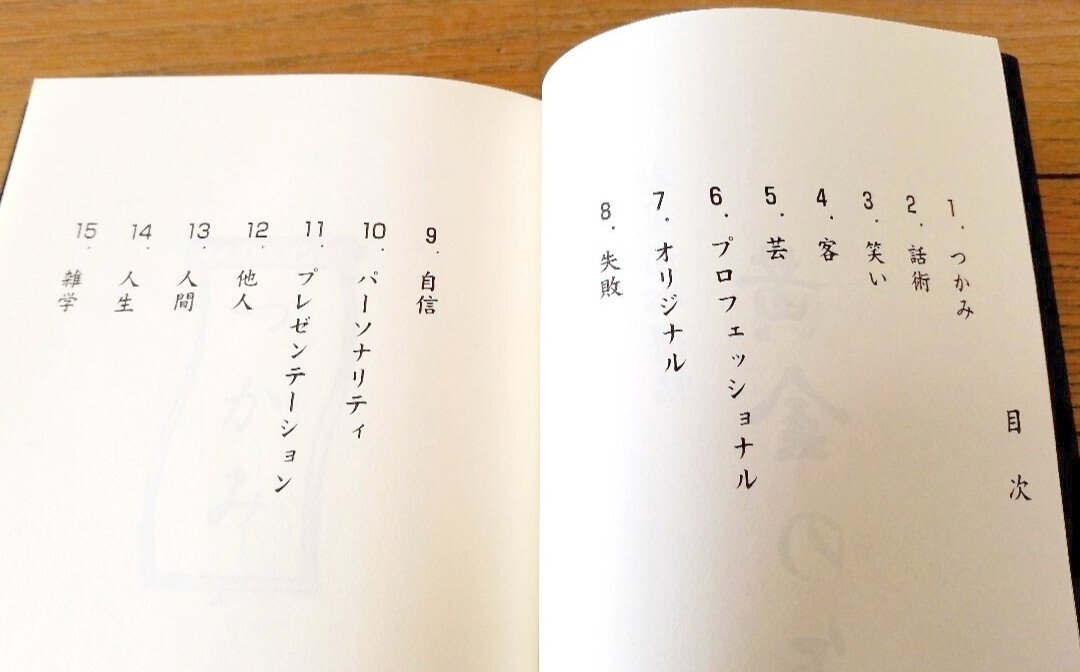 目次
1. つかみ
2. 話術
3. 笑い
4. 客
5. 芸
6. プロフェッショナル
7. オリジナル
8. 失敗
9. 自信
10. パーソナリティ
11. プレゼンテーション
12. 他人
13. 人間
14. 人生
15. 雑学